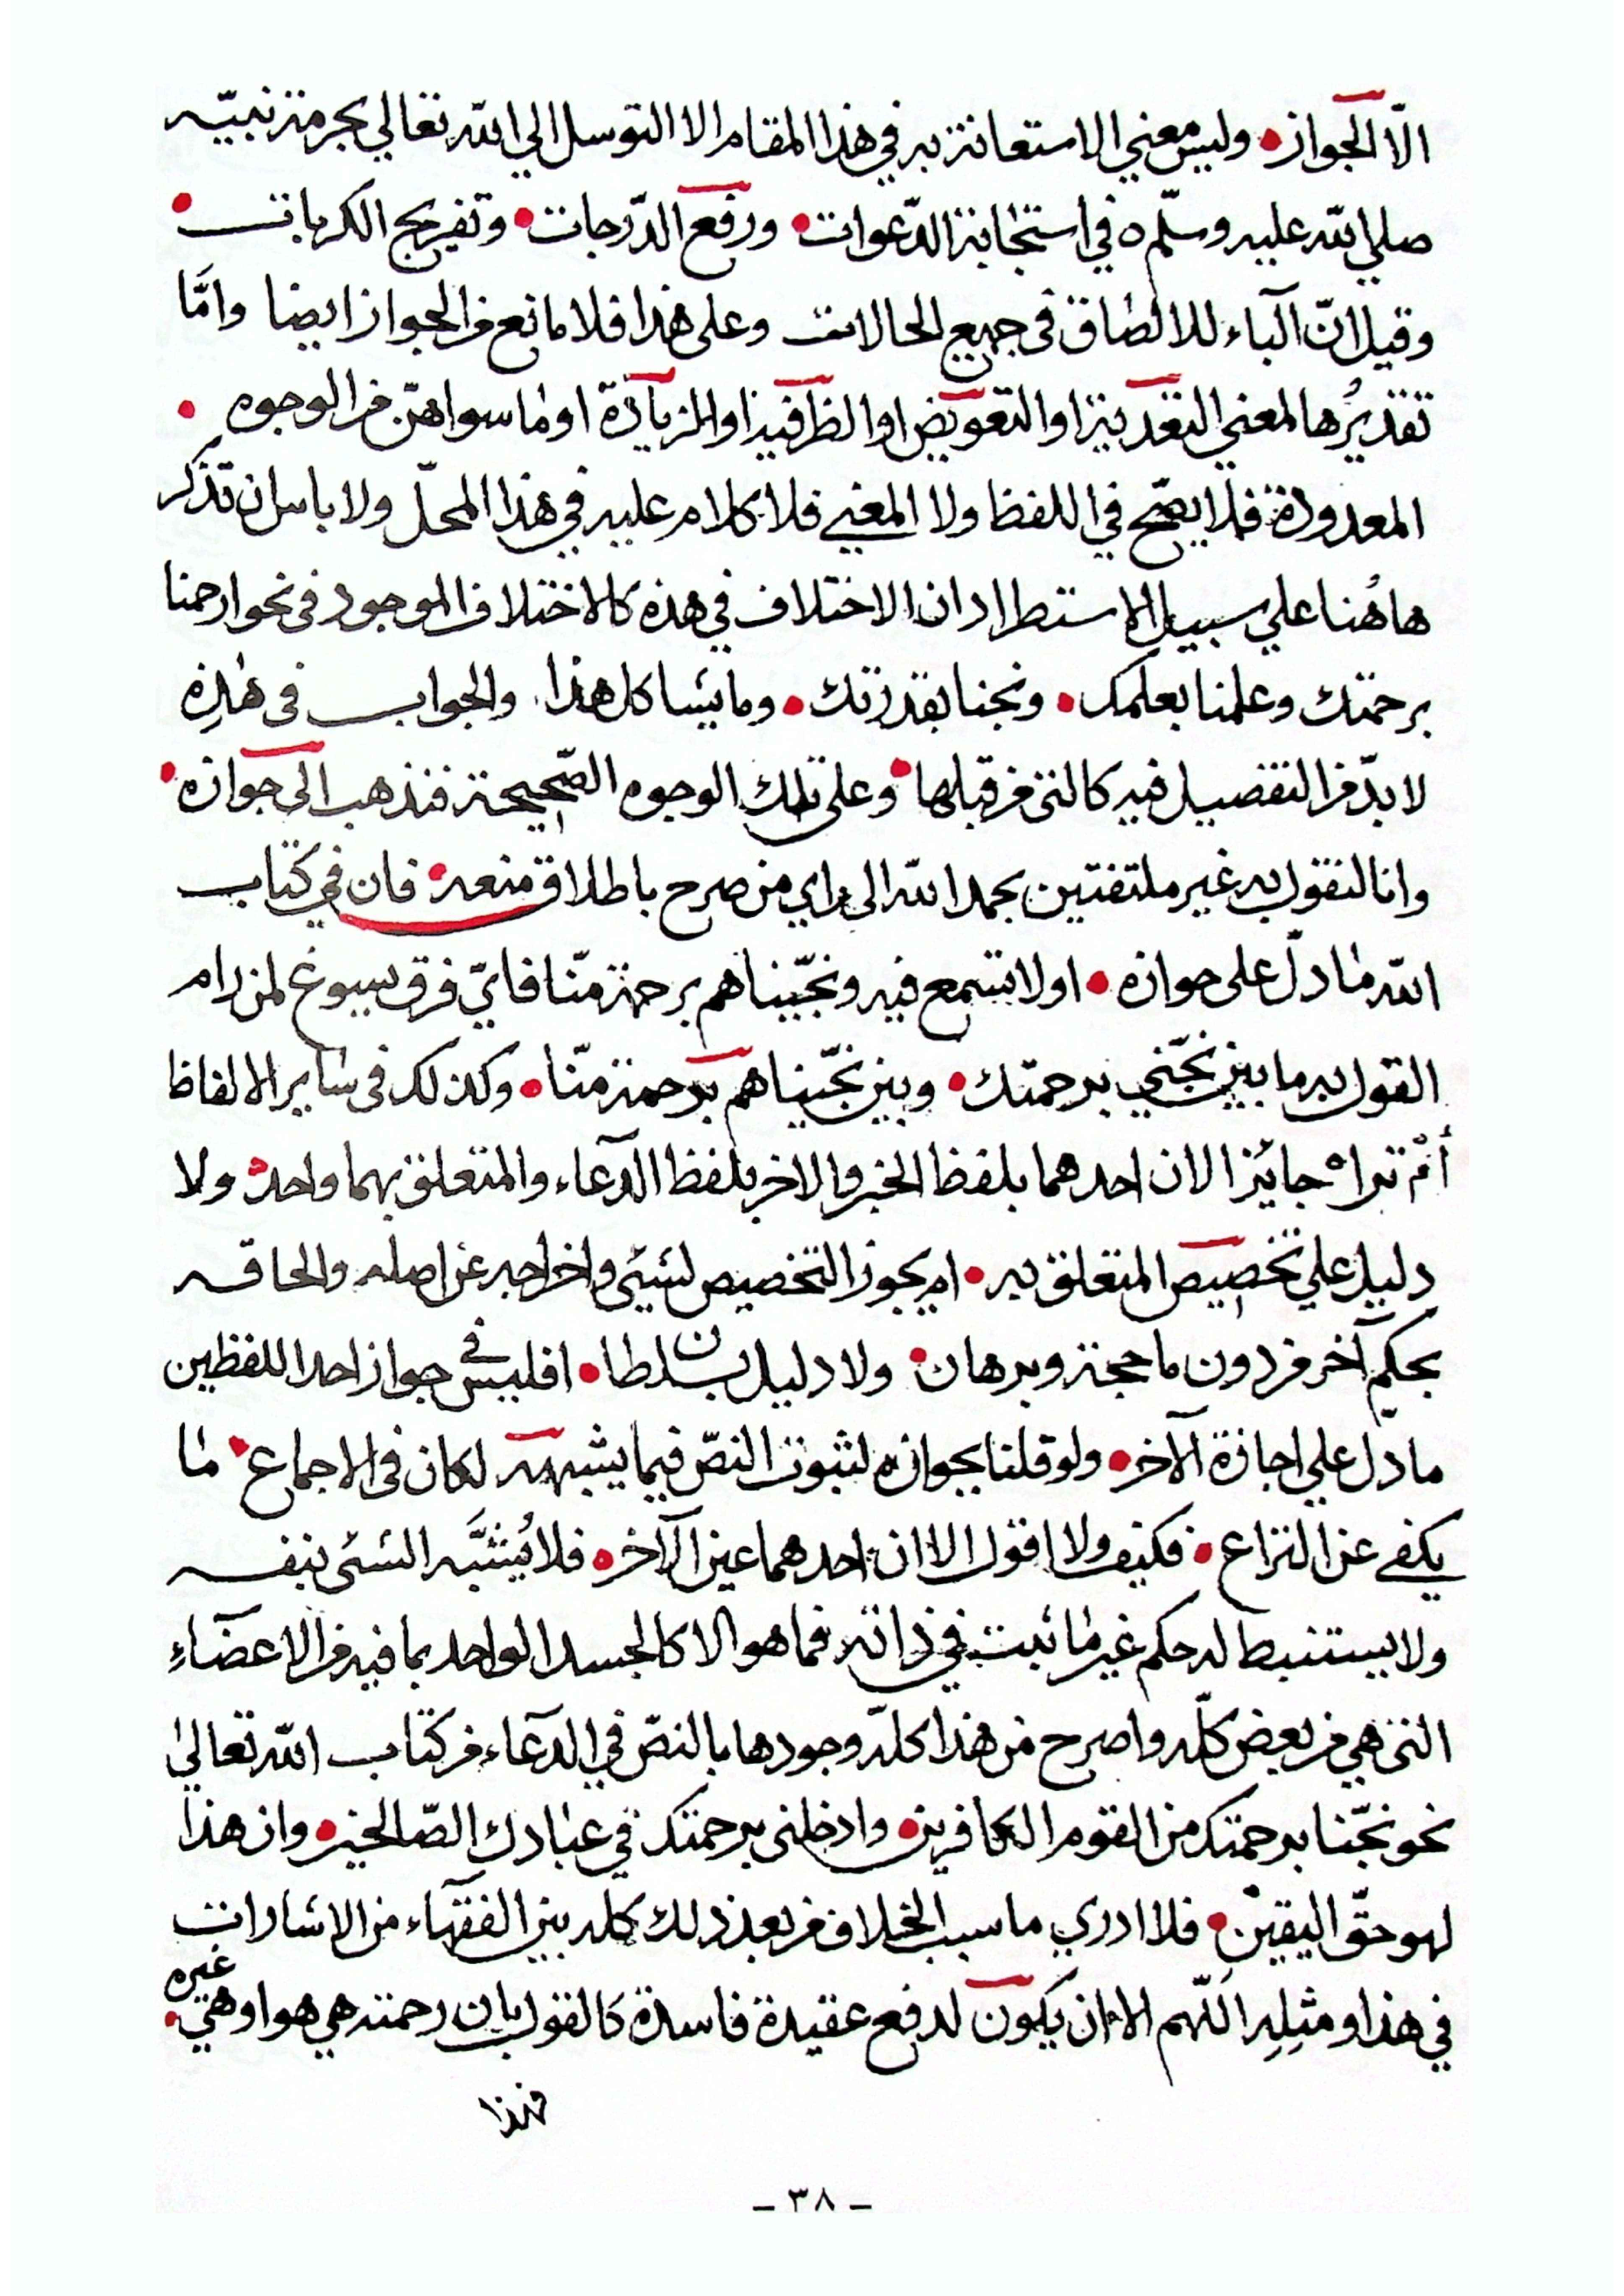 الّا الجواز • وليس معني الاستعانة به في هذا المقام الا التوسل الي الله تعالي بحرمة نبيّه
صلي الله عليه وسلّم ٥ في استجابة الدّعوات • ورفع الدّرجات • وتفريج الكربات •
وقيل انّ الباء للالصاق فى جميع الحالات وعلى هذا فلا مانع من الجواز ايضا وامَّا
تقديرُها لمعني التعدية او التعويض او الظرفية او الزيادة او ما سواهنّ من الوجوه •
المعدودة فلا يصّح في اللفظ ولا المعني فلا كلام عليه في هذا المحلّ ولا باس ان نذكر
هاهُنا علي سبيل الاستطراد ان الاختلاف في هذه كالاختلاف الموجود فى نحو ارحمنا
برحمتك وعلمنا بعلمك • ونجنا بقدرتك • وما يشاكل هذا والجواب فى هذِه
لا بدّ من التفصيل فيه كالتى من قبلها • وعلى تلك الوجوه الصّحيحة فنذهب الى جوازه •
وانا لنقول به غير ملتفتين بحمد الله الى راي من صرح باطلاق منعه • فان في كتاب
الله ما دلّ على جوازه • اولا تسمع فيه ونجّيناهم برحمة منّا فايّ فرق يسوغ لمن رام
القول به ما بين نجّني برحمتك • وبين نجّيناهم برحمة منّا • وكذلك فى ساير الالفاظ
أمْ تراه جايزا لان احدهما بلفظ الخبر والاخر بلفظ الدّعاء والمتعلق بهما واحد • ولا
دليل علي تخصيص المتعلق به • ام يجوز التخصيص لشئ واخراجه عن اصله والحاقه
بحكم آخر من دون ما حجة وبرهان • ولا دليل بسلطان • افليس في جواز احد اللفظين
ما دلّ علي اجازة الآخر • ولو قلنا بجوازه لثبوت النصّ فيما يشبهه لكان فى الاجماع • ما
يكفي عن النزاع • فكيف ولا اقول الا ان احدهما عين الآخر • فلا يُشَبَّه الشئ بنفسه
ولا يستنبط له حكم غير ما ثبت في ذاته فما هو الا كالجسد الواحد بما فيه من الاعضاءِ
التى هي من بعض كلّه واصرح من هذا كلّه وجودها بالنصّ في الدعاء من كتاب الله تعالى
نحو نجّنا برحمتك من القوم الكافرين • وادخلنى برحمتك في عبادك الصّالحين • وان هذا
لهو حقّ اليقين • فلا ادري ما سبب الخلاف من بعد ذلك كله بين الفقهاء من الاشارات
في هذا ومثلِه اللّهم الا ان يكون لدفع عقيدة فاسدة كالقول بان رحمته هي هو او هي غيره •
فهذا
- ٣٨ -